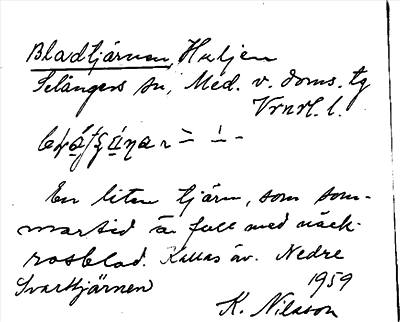 Bladtjärnen, Huljen
Selångers sn, Med. v. doms. tg
Vrnrl. l.
En liten tjärn, som som-
martid är full med näck-
rosblad. Kallas äv. Nedre
Svarttjärnen 1959
K. Nilsson